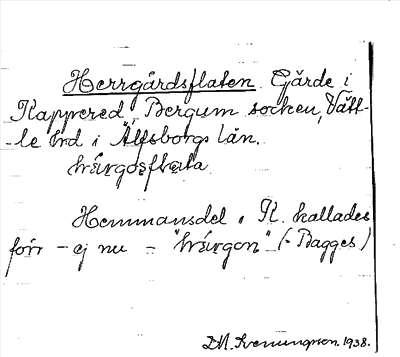 Herrgårdsflaten. Gärde i
Kappered, Bergum socken, Vätt-
-le hrd i Älfsborgs län.
Hemmansdel i K. kallades
förr - ej nu - (- Bagges)
D.N. Svenungsson. 1938.